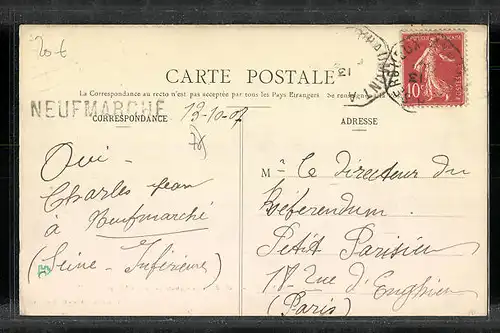 20-t
CARTE POSTALE
La Correspondance au recto n'est pas acceptée par tous les Pays Etrangers. Se renseigner
NEUFMARCHÉ
CORRESPONDANCE
13-10-07
ADRESSE
Oui -
Charles Jean
à Neufmarché
(Seine-Inférieure)
Mr Le Directeur du
Référendum
Petit Parisien
17 rue d'Enghien
(Paris)
10
POSTES